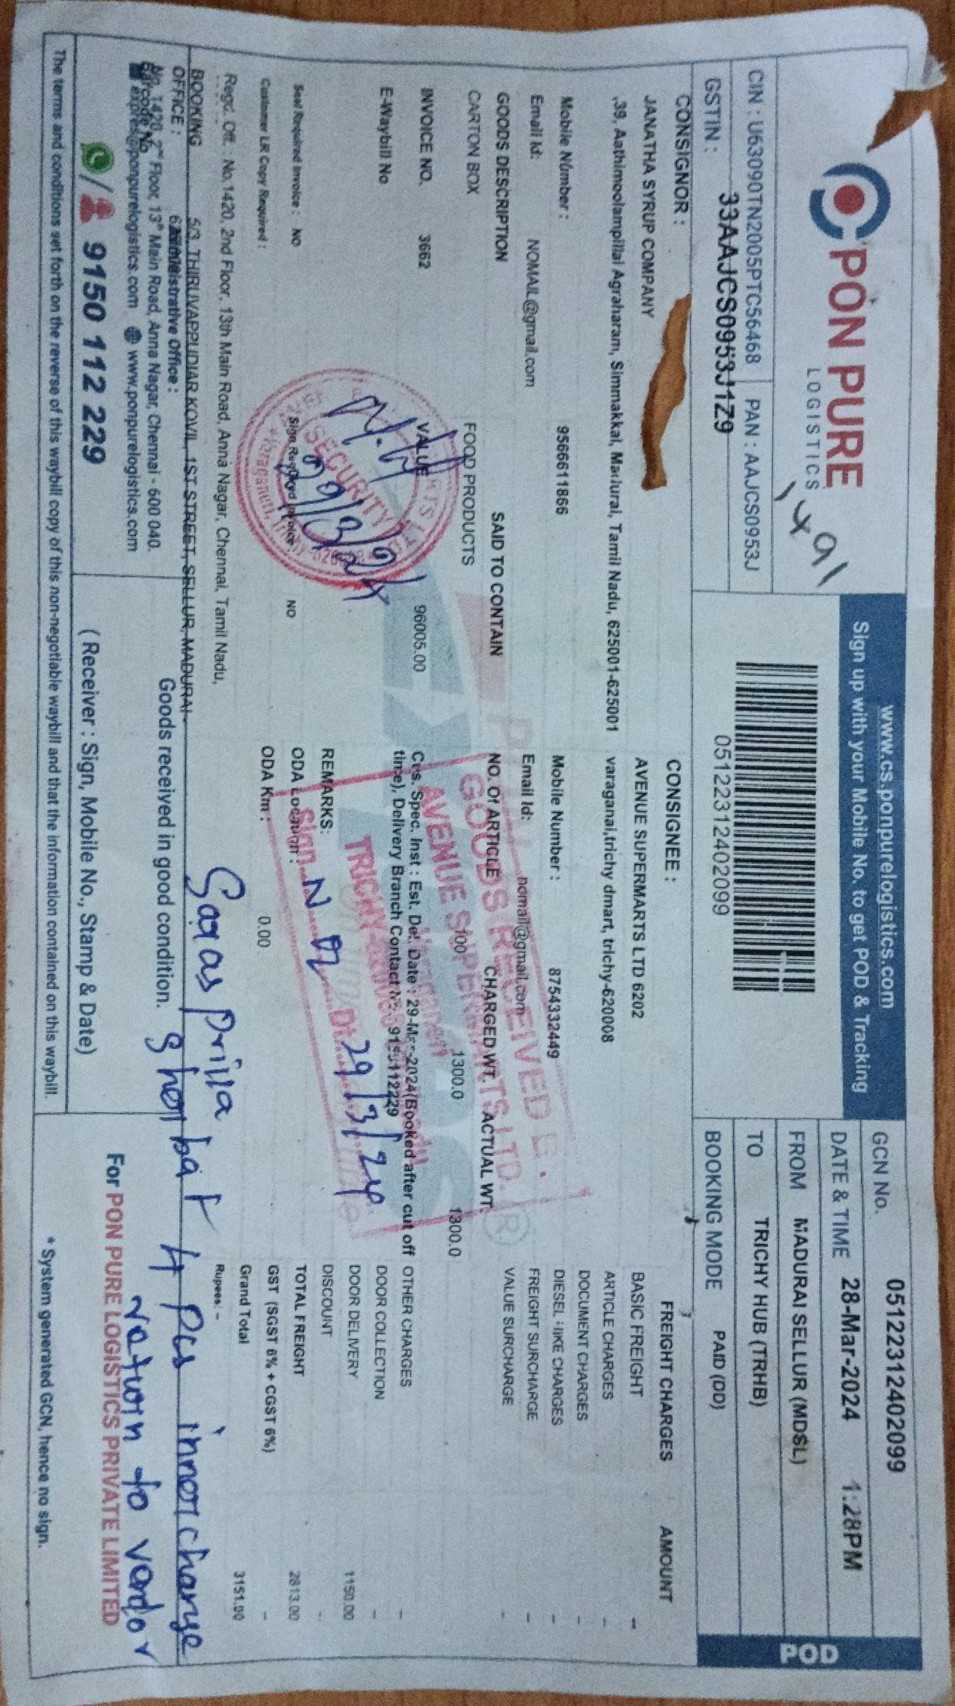 PON PURE
LOGISTICS
1x91
CIN : U63090TN2005PTC56468 PAN : AAJCS0953J
GSTIN : 33AAJCS0953J1Z9
www.cs.ponpurelogistics.com
Sign up with your Mobile No. to get POD & Tracking
05122312402099
GCN No. 05122312402099
DATE & TIME 28-Mar-2024 1:28PM
FROM MADURAI SELLUR (MDSL)
TO TRICHY HUB (TRHB)
BOOKING MODE PAID (DD)
POD
CONSIGNOR :
JANATHA SYRUP COMPANY
,39, Aathimoolampillai Agraharam, Simmakkal, Madurai, Tamil Nadu, 625001-625001
Mobile Number : 9566611866
Email Id: NOMAIL@gmail.com
CONSIGNEE :
AVENUE SUPERMARTS LTD 6202
varaganai,trichy dmart, trichy-620008
Mobile Number : 8754332449
Email Id: nomail@gmail.com
GOODS DESCRIPTION SAID TO CONTAIN NO. Of ARTICLE CHARGED WT. ACTUAL WT.
CARTON BOX FOOD PRODUCTS 100 1300.0 1300.0
INVOICE NO. 3662 VALUE 96005.00
E-Waybill No
Cus. Spec. Inst : Est. Del. Date : 29-Mar-2024(Booked after cut off
time), Delivery Branch Contact No. 9150112229
Seal Required Invoice : NO Sign Required Invoice NO
Customer LR Copy Required :
REMARKS:
ODA Location :
ODA Km : 0.00
FREIGHT CHARGES AMOUNT
BASIC FREIGHT -
ARTICLE CHARGES -
DOCUMENT CHARGES -
DIESEL HIKE CHARGES -
FREIGHT SURCHARGE -
VALUE SURCHARGE -
OTHER CHARGES -
DOOR COLLECTION -
DOOR DELIVERY 1150.00
DISCOUNT -
TOTAL FREIGHT 2813.00
GST (SGST 6% + CGST 6%) -
Grand Total 3151.00
Rupees: -
SECURITY
29/3/24
GOODS RECEIVED
AVENUE SUPERMARTS LTD.
TRICHY
Sign
29/3/24
Regd. Off. : No.1420, 2nd Floor, 13th Main Road, Anna Nagar, Chennai, Tamil Nadu,
BOOKING OFFICE : 5/3, THIRUVAPPUDIAR KOVIL, 1ST STREET, SELLUR, MADURAI-
Administrative Office :
No. 1420, 2nd Floor, 13th Main Road, Anna Nagar, Chennai - 600 040.
express@ponpurelogistics.com www.ponpurelogistics.com
/ 9150 112 229
Goods received in good condition.
( Receiver : Sign, Mobile No., Stamp & Date)
sherbat 4 pcs
return to vendor
For PON PURE LOGISTICS PRIVATE LIMITED
The terms and conditions set forth on the reverse of this waybill copy of this non-negotiable waybill and that the information contained on this waybill.
* System generated GCN, hence no sign.